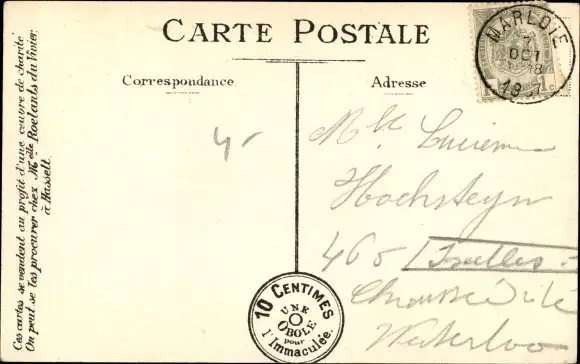 CARTE POSTALE
Correspondance
Adresse
MARLOIE
7
OCT
8
1907
Ces cartes se vendent au profit d'une œuvre de charité
On peut se les procurer chez Melle Roelants du Vivier
à Hasselt.
4-
Melle Lucienne
Hochsteyn
465 Ixelles
Chaussée de
Waterloo
10 CENTIMES
UNE
OBOLE
pour
l'Immaculée.